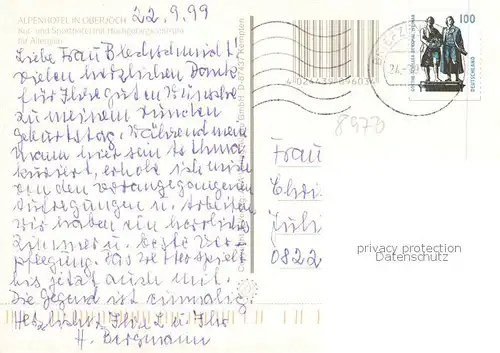 22.9.99
ALPENHOTEL IN OBERJOCH
Kur- und Sporthotel mit Hochgebirgsklinik
für Allergien
Liebe Frau Blechschmidt!
vielen herzlichen Dank
für Ihre guten Wünsche
zu meinem runden
Geburtstag. Während mein
Mann hier sein Asthma
kuriert, erhole ich mich
von den vorangegangenen
Aufregungen u. Arbeiten.
Wir haben ein herrliches
Zimmer u. beste Ver-
pflegung. Das Wetter spielt
bis jetzt auch mit.
Die Gegend ist einmalig.
Herzlichst Ihre u. Ihr
H. Bergmann
D-87437 Kempten
4 024439 646034
8973
100
DEUTSCHLAND
GOETHE-SCHILLER-DENKMAL WEIMAR
Frau
Chri
Juli
0822
privacy protection
Datenschutz